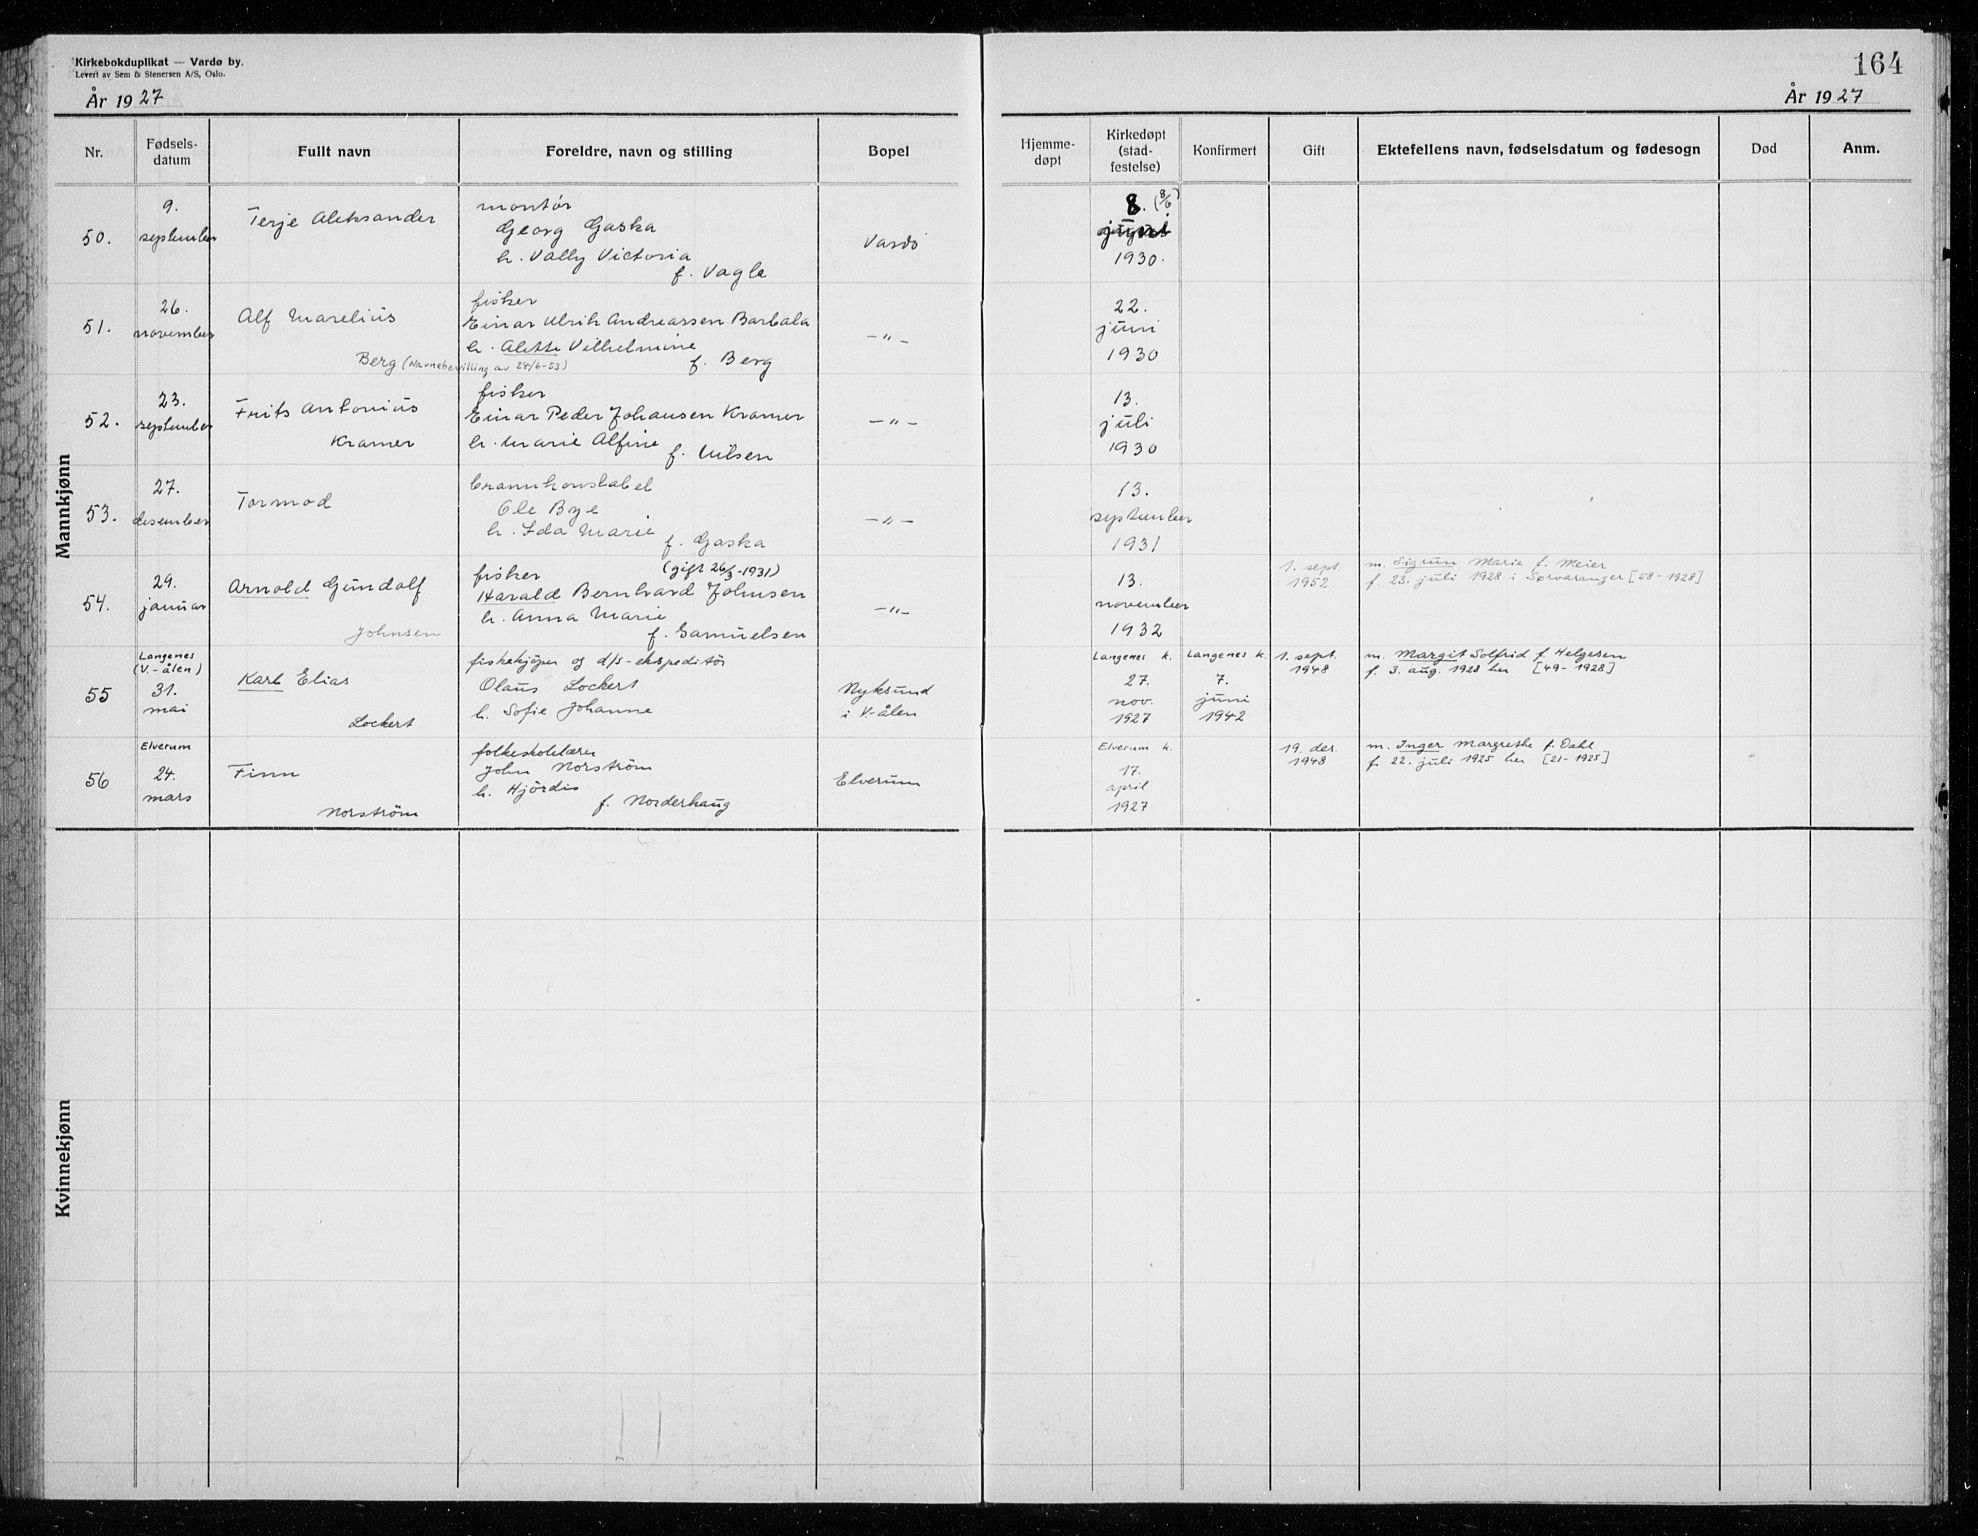 Kirkebokduplikat — Vardø by.
Levert av Sem & Stenersen A/S, Oslo.
År 1927
164
År 1927
Nr.
Fødsels-
datum
Fullt navn
Foreldre, navn og stilling
Bopel
Hjemme-
døpt
Kirkedøpt
(stad-
festelse)
Konfirmert
Gift
Ektefellens navn, fødselsdatum og fødesogn
Død
Anm.
Mannkjønn
50.
9.
september
Terje Aleksander
montør
Georg Gaska
h. Vally Victoria
f. Vagle
Vardö
8. (8/6)
juni
1930.
51.
26.
november
Alf Marelius
Berg (Navnebevilling av 24/6-53)
fisker
Einar Ulrik Andreassen Barbala
h. Alette Vilhelmine
f. Berg
—"—
22.
juni
1930
52.
23.
september
Frits Antonius
Kramer
fisker
Einar Peder Johansen Kramer
h. Marie Alfine
f. Nilsen
—"—
13.
juli
1930
53.
27.
desember
Tormod
brannkonstabel
Ole Bye
h. Ida Marie
f. Gaska
—"—
13.
september
1931
54.
29.
januar
Arnold Gundolf
Johnsen
fisker (gift 26/3-1931)
Harald Bernhard Johnsen
h. Anna Marie
f. Samuelsen
—"—
13.
november
1932
1. sept.
1952
m. Sigrun Marie f. Meier
f. 23. juli 1928 i Sørvaranger [58-1928]
55
Langenes
(V.-ålen)
31.
mai
Karl Elias
Lockert
fiskekjöper og d/s-ekspeditör
Olaus Lockert
h. Sofie Johanne
Nyksund
i V-ålen
Langenes k.
27.
nov.
1927
Langenes k.
7.
juni
1942
1. sept.
1948
m. Margit Solfrid f. Helgesen
f. 3. aug. 1928 her [49-1928]
56
Elverum
24.
mars
Finn
Norström
folkeskolelærer
John Norström
h. Hjördis
f. Norderhaug
Elverum
Elverum k.
17.
april
1927
19. des.
1948
m. Inger Margrethe f. Dahl
f. 22. juli 1925 her [21-1925]
Kvinnekjønn